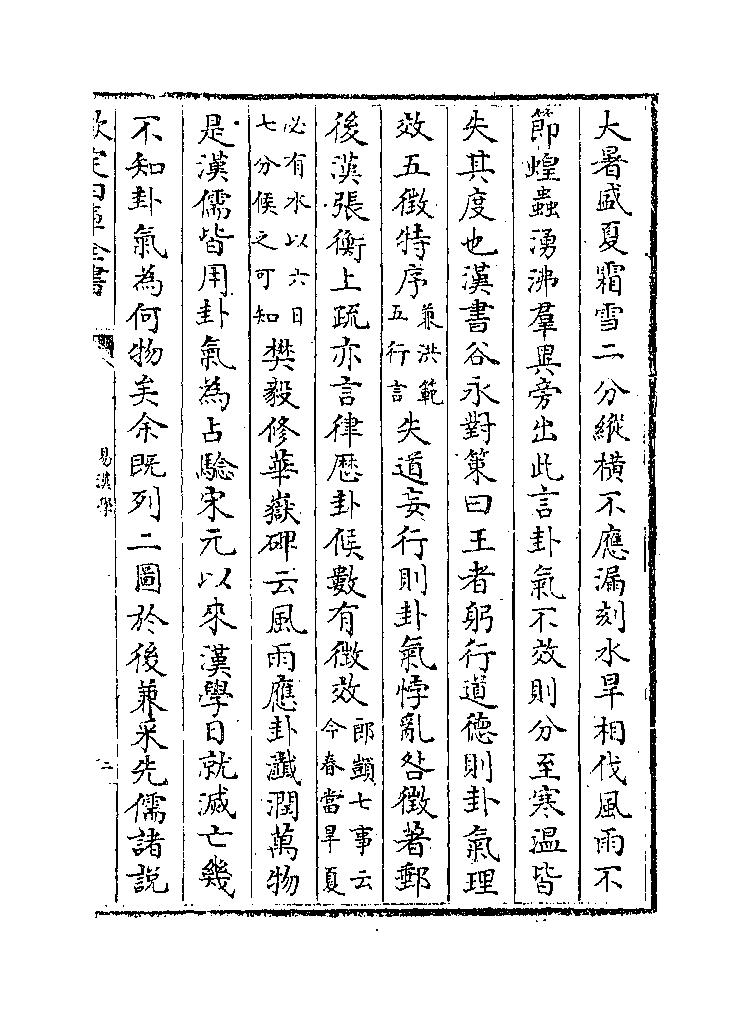 大暑盛夏霜雪二分縱橫不應漏刻水旱相伐風雨不
節蝗蟲湧沸羣異旁出此言卦氣不效則分至寒温皆
失其度也漢書谷永對策曰王者躬行道德則卦氣理
效五徵特序兼洪範五行言失道妄行則卦氣悖亂咎徵著郵
後漢張衡上疏亦言律歴卦候數有徵效郎顗七事云今春當旱夏
必有水以六日七分候之可知樊毅修華嶽碑云風雨應卦瀸潤萬物
是漢儒皆用卦氣為占驗宋元以來漢學日就滅亡幾
不知卦氣為何物矣余既列二圖於後兼采先儒諸說
欽定四庫全書
易漢學
二